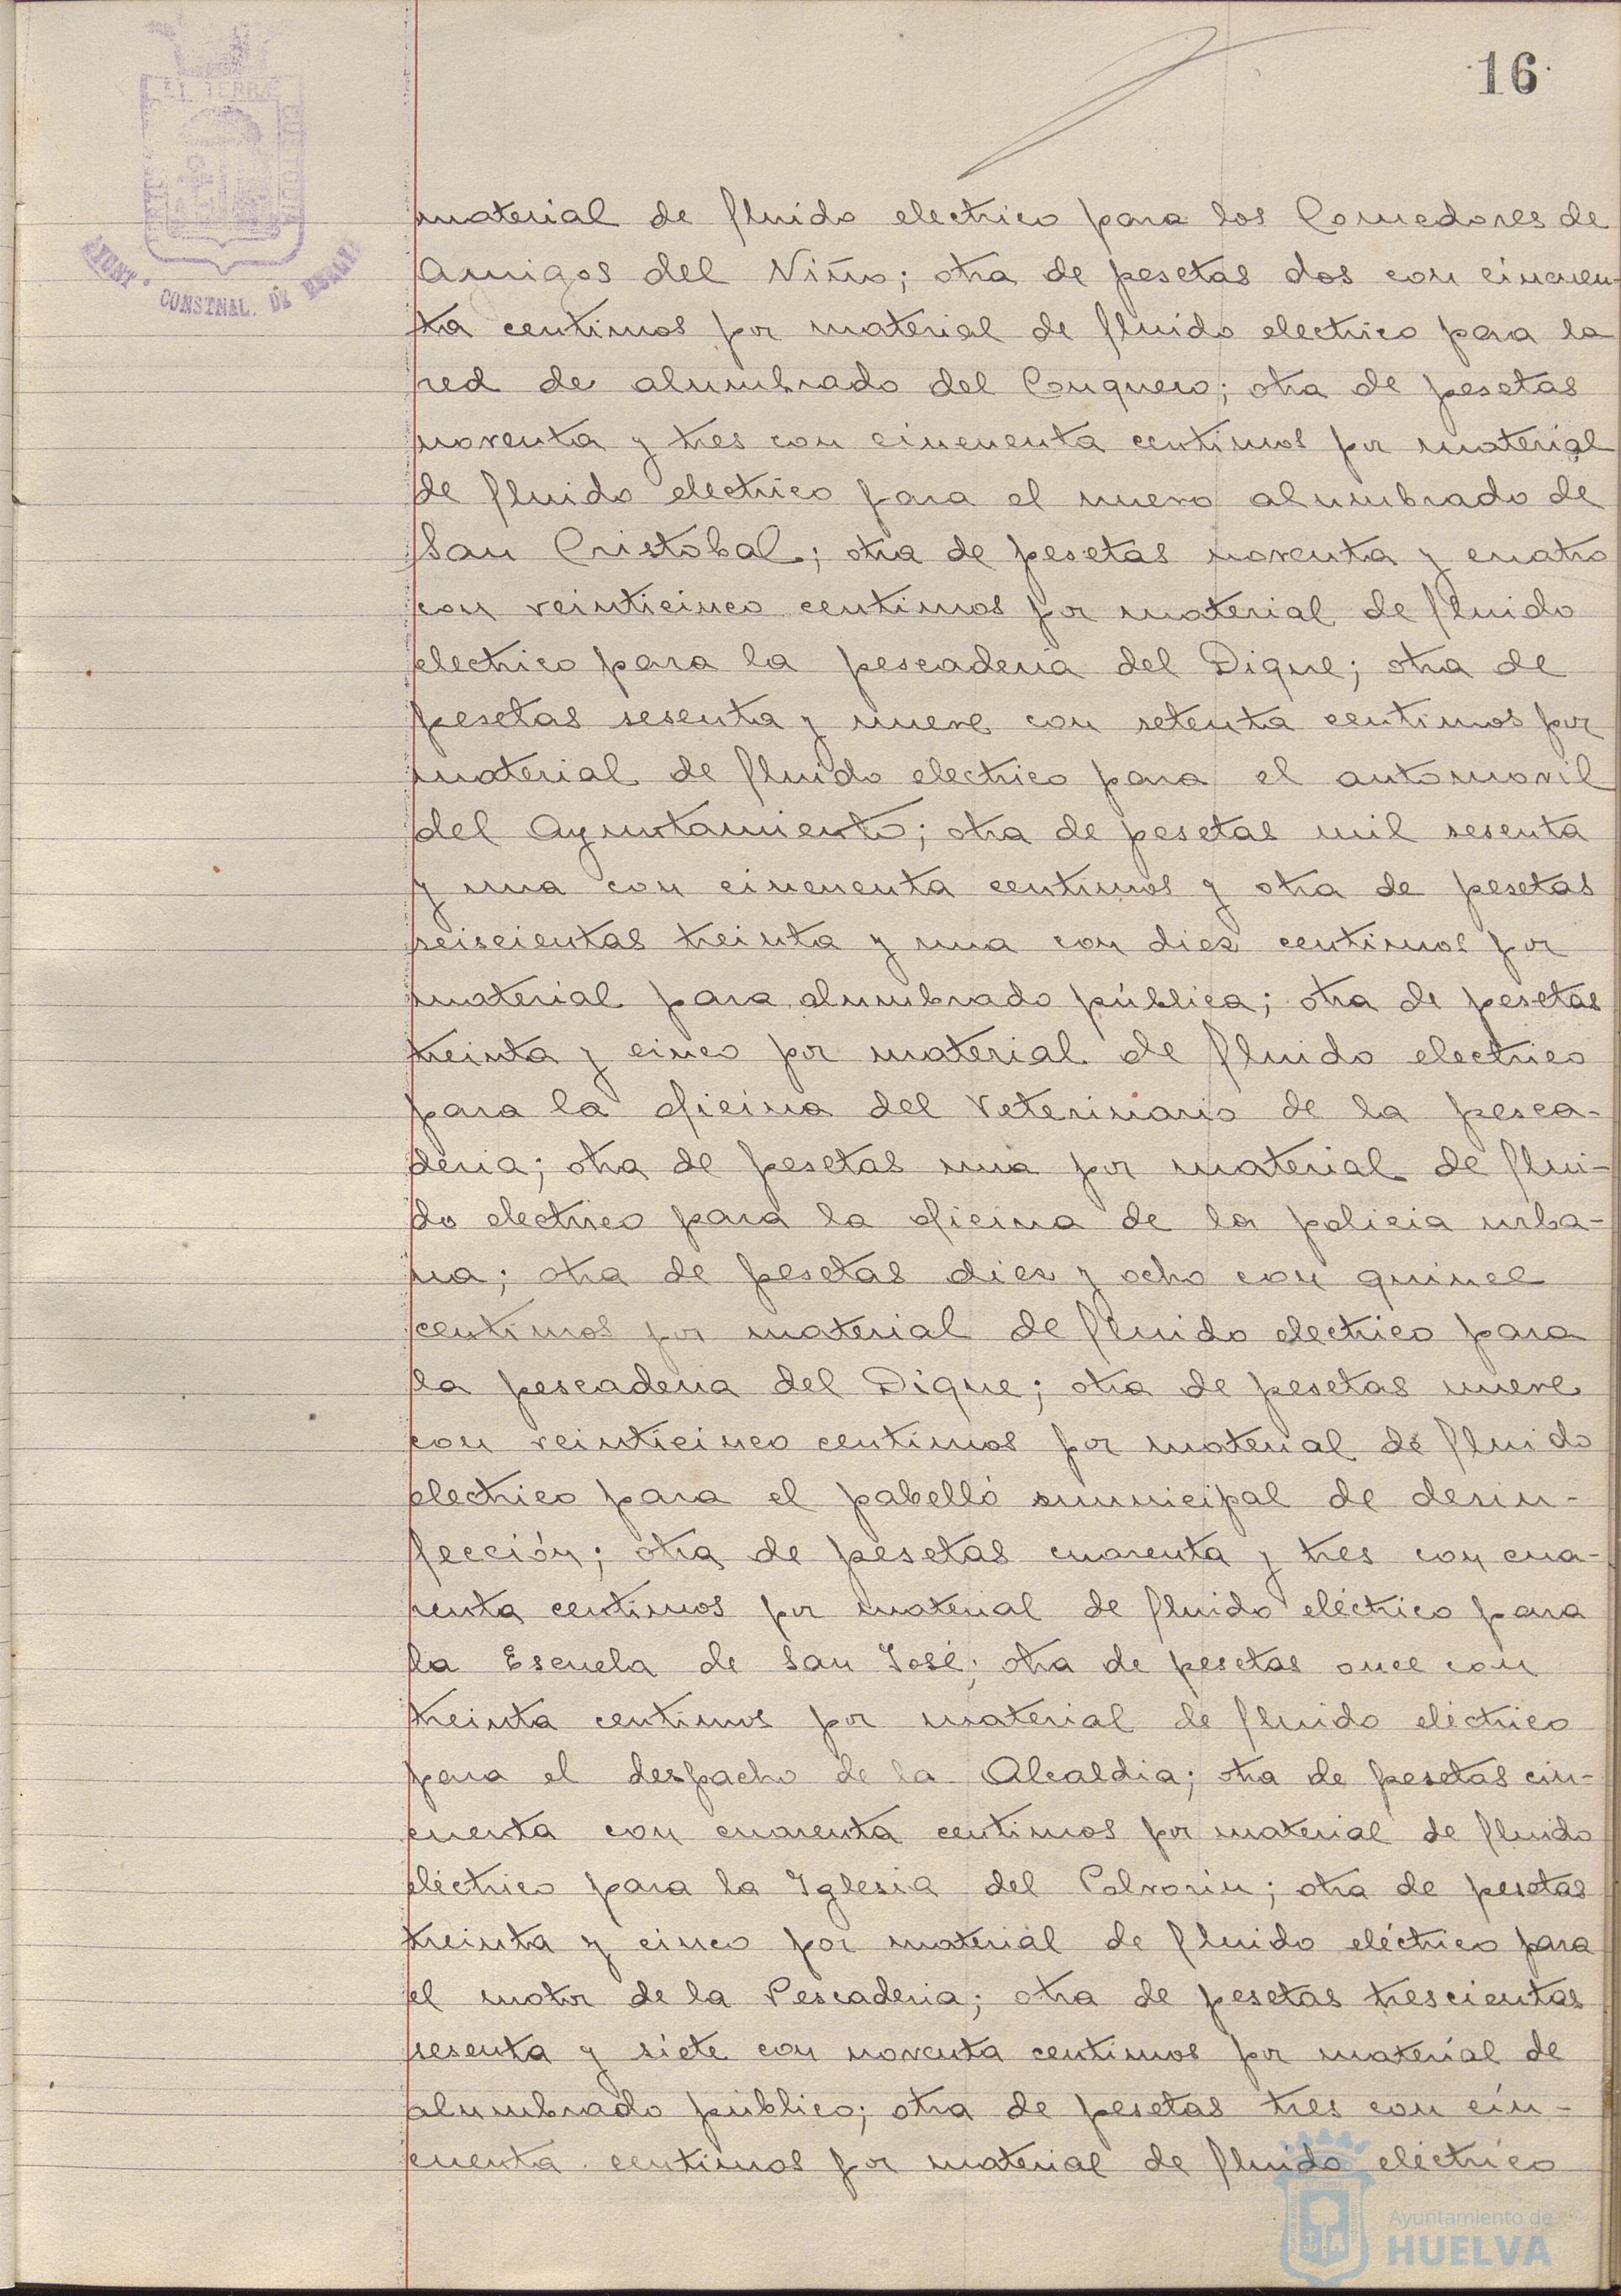 16
EL TERRÆ
CUSTODIA
AYUNT.º CONSTNAL. DE HUELVA
material de fluido electrico para los Comedores de
Amigos del Niño; otra de pesetas dos con cincuen-
ta centimos por material de fluido electrico para la
red de alumbrado del Conquero; otra de pesetas
noventa y tres con cincuenta centimos por material
de fluido electrico para el nuevo alumbrado de
San Cristobal; otra de pesetas noventa y cuatro
con veinticinco centimos por material de fluido
electrico para la pescaderia del Dique; otra de
pesetas sesenta y nueve con setenta centimos por
material de fluido electrico para el automovil
del Ayuntamiento; otra de pesetas mil sesenta
y una con cincuenta centimos y otra de pesetas
seiscientas treinta y una con diez centimos por
material para alumbrado pública; otra de pesetas
treinta y cinco por material de fluido electrico
para la oficina del Veterinario de la pesca-
deria; otra de pesetas una por material de flui-
do electrico para la oficina de la policia urba-
na; otra de pesetas diez y ocho con quince
centimos por material de fluido electrico para
la pescaderia del Dique; otra de pesetas nueve
con veinticinco centimos por material de fluido
electrico para el pabelló municipal de desin-
fección; otra de pesetas cuarenta y tres con cua-
renta centimos por material de fluido eléctrico para
la Escuela de San José; otra de pesetas once con
treinta centimos por material de fluido eléctrico
para el despacho de la Alcaldia; otra de pesetas cin-
cuenta con cuarenta centimos por material de fluido
eléctrico para la Iglesia del Polvorin; otra de pesetas
treinta y cinco por material de fluido eléctrico para
el motor de la Pescaderia; otra de pesetas trescientas
sesenta y siete con noventa centimos por material de
alumbrado público; otra de pesetas tres con cin-
cuenta centimos por material de fluido eléctrico
Ayuntamiento de
HUELVA